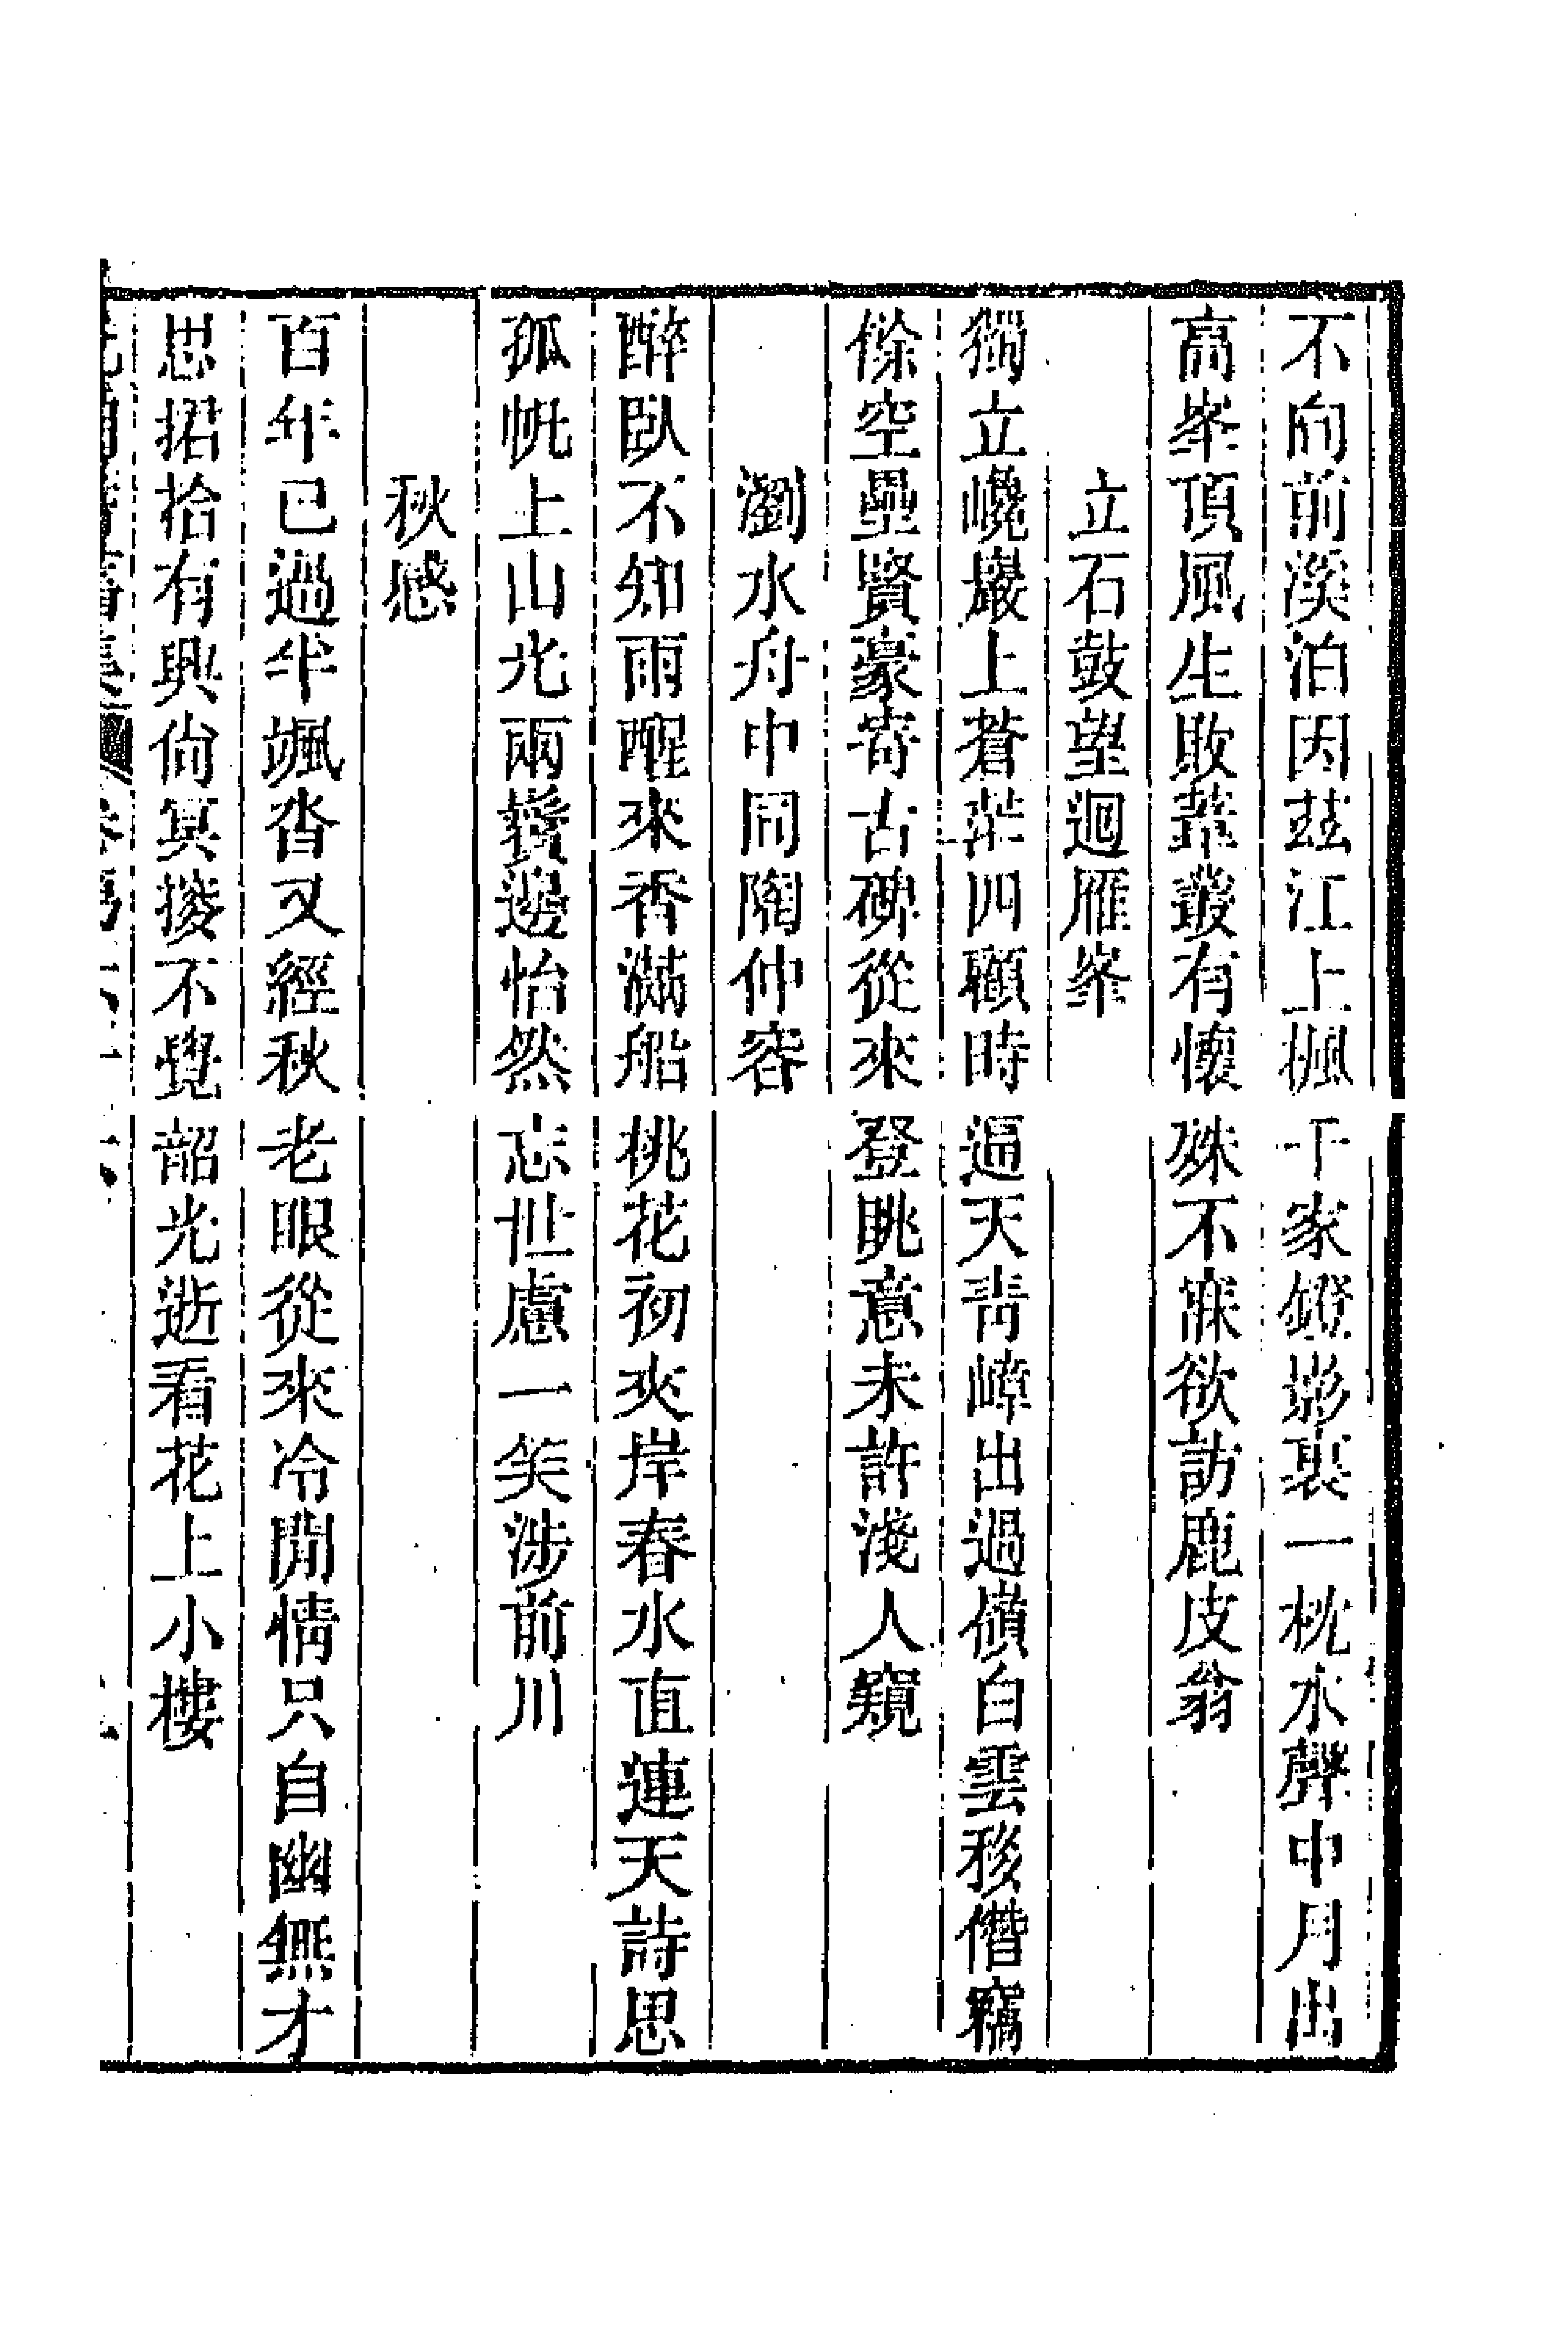 不向前溪泊因茲江上楓千家鐙影裏一枕水聲中月出
高峯頂風生敗葦叢有懷殊不寐欲訪鹿皮翁
立石鼓望迴雁峯
獨立巉巖上蒼茫四顧時逼天青嶂出過嶺白雲移僭竊
餘空壘賢豪寄古碑從來登眺意未許淺人窺
瀏水舟中同陶仲容
醉臥不知雨醒來香滿船桃花初夾岸春水直連天詩思
孤帆上山光兩鬢邊怡然忘世慮一笑涉前川
秋感
百年已過半颯沓又經秋老眼從來冷閒情只自幽無才
思招拾有興尙冥搜不覺韶光逝看花上小樓